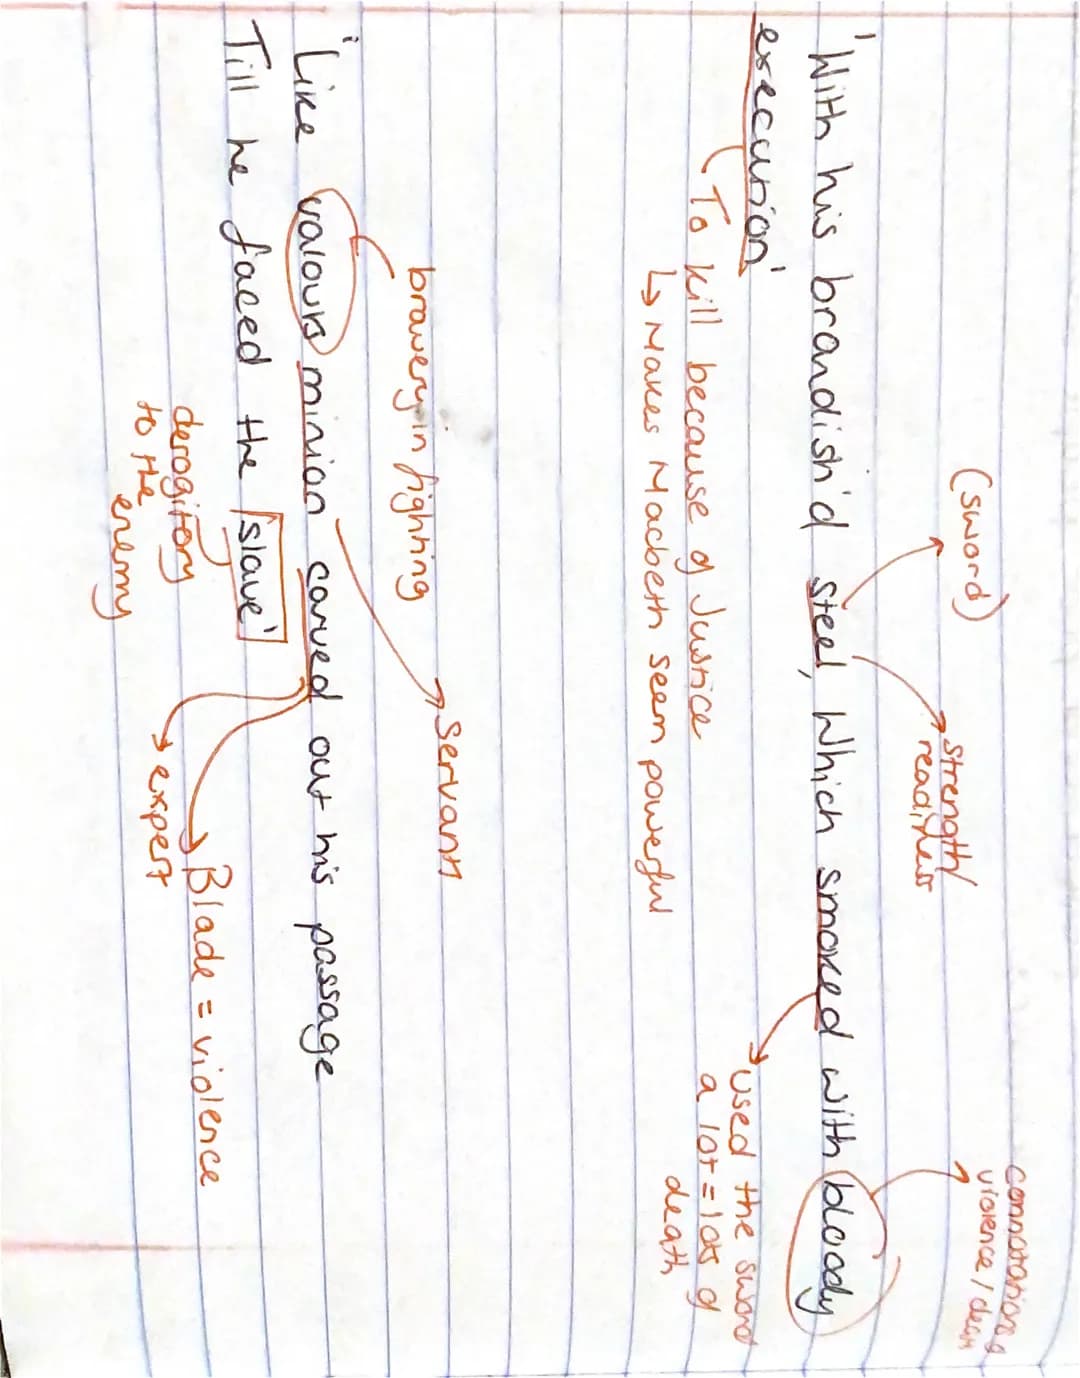 (sword)
strength/
readiness
connotations
violence / death
'With his brandish'd steel, Which smoked with bloody
execution'
To kill because of Justice
↳ Makes Macbeth seem powerful
used the sword
a lot = lots of
death
bravery in fighting
Servant
'Like valours minion carved out his passage
Till he faced the slave'
derogitory
to the
enemy
expert
Blade = violence